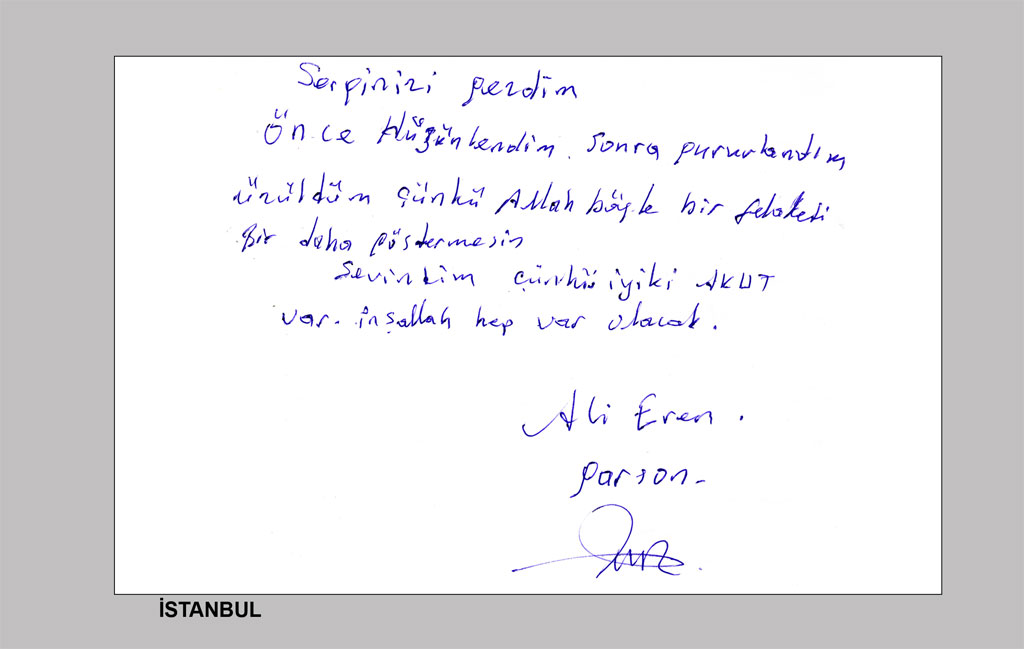 Serginizi gezdim
Önce Hüzünlendim. sonra gururlandım
üzüldüm çünkü Allah böyle bir felaketi
Bir daha göstermesin
Sevindim çünkü iyiki AKUT
var. inşallah hep var olacak.
Ali Eren.
garson-
İSTANBUL